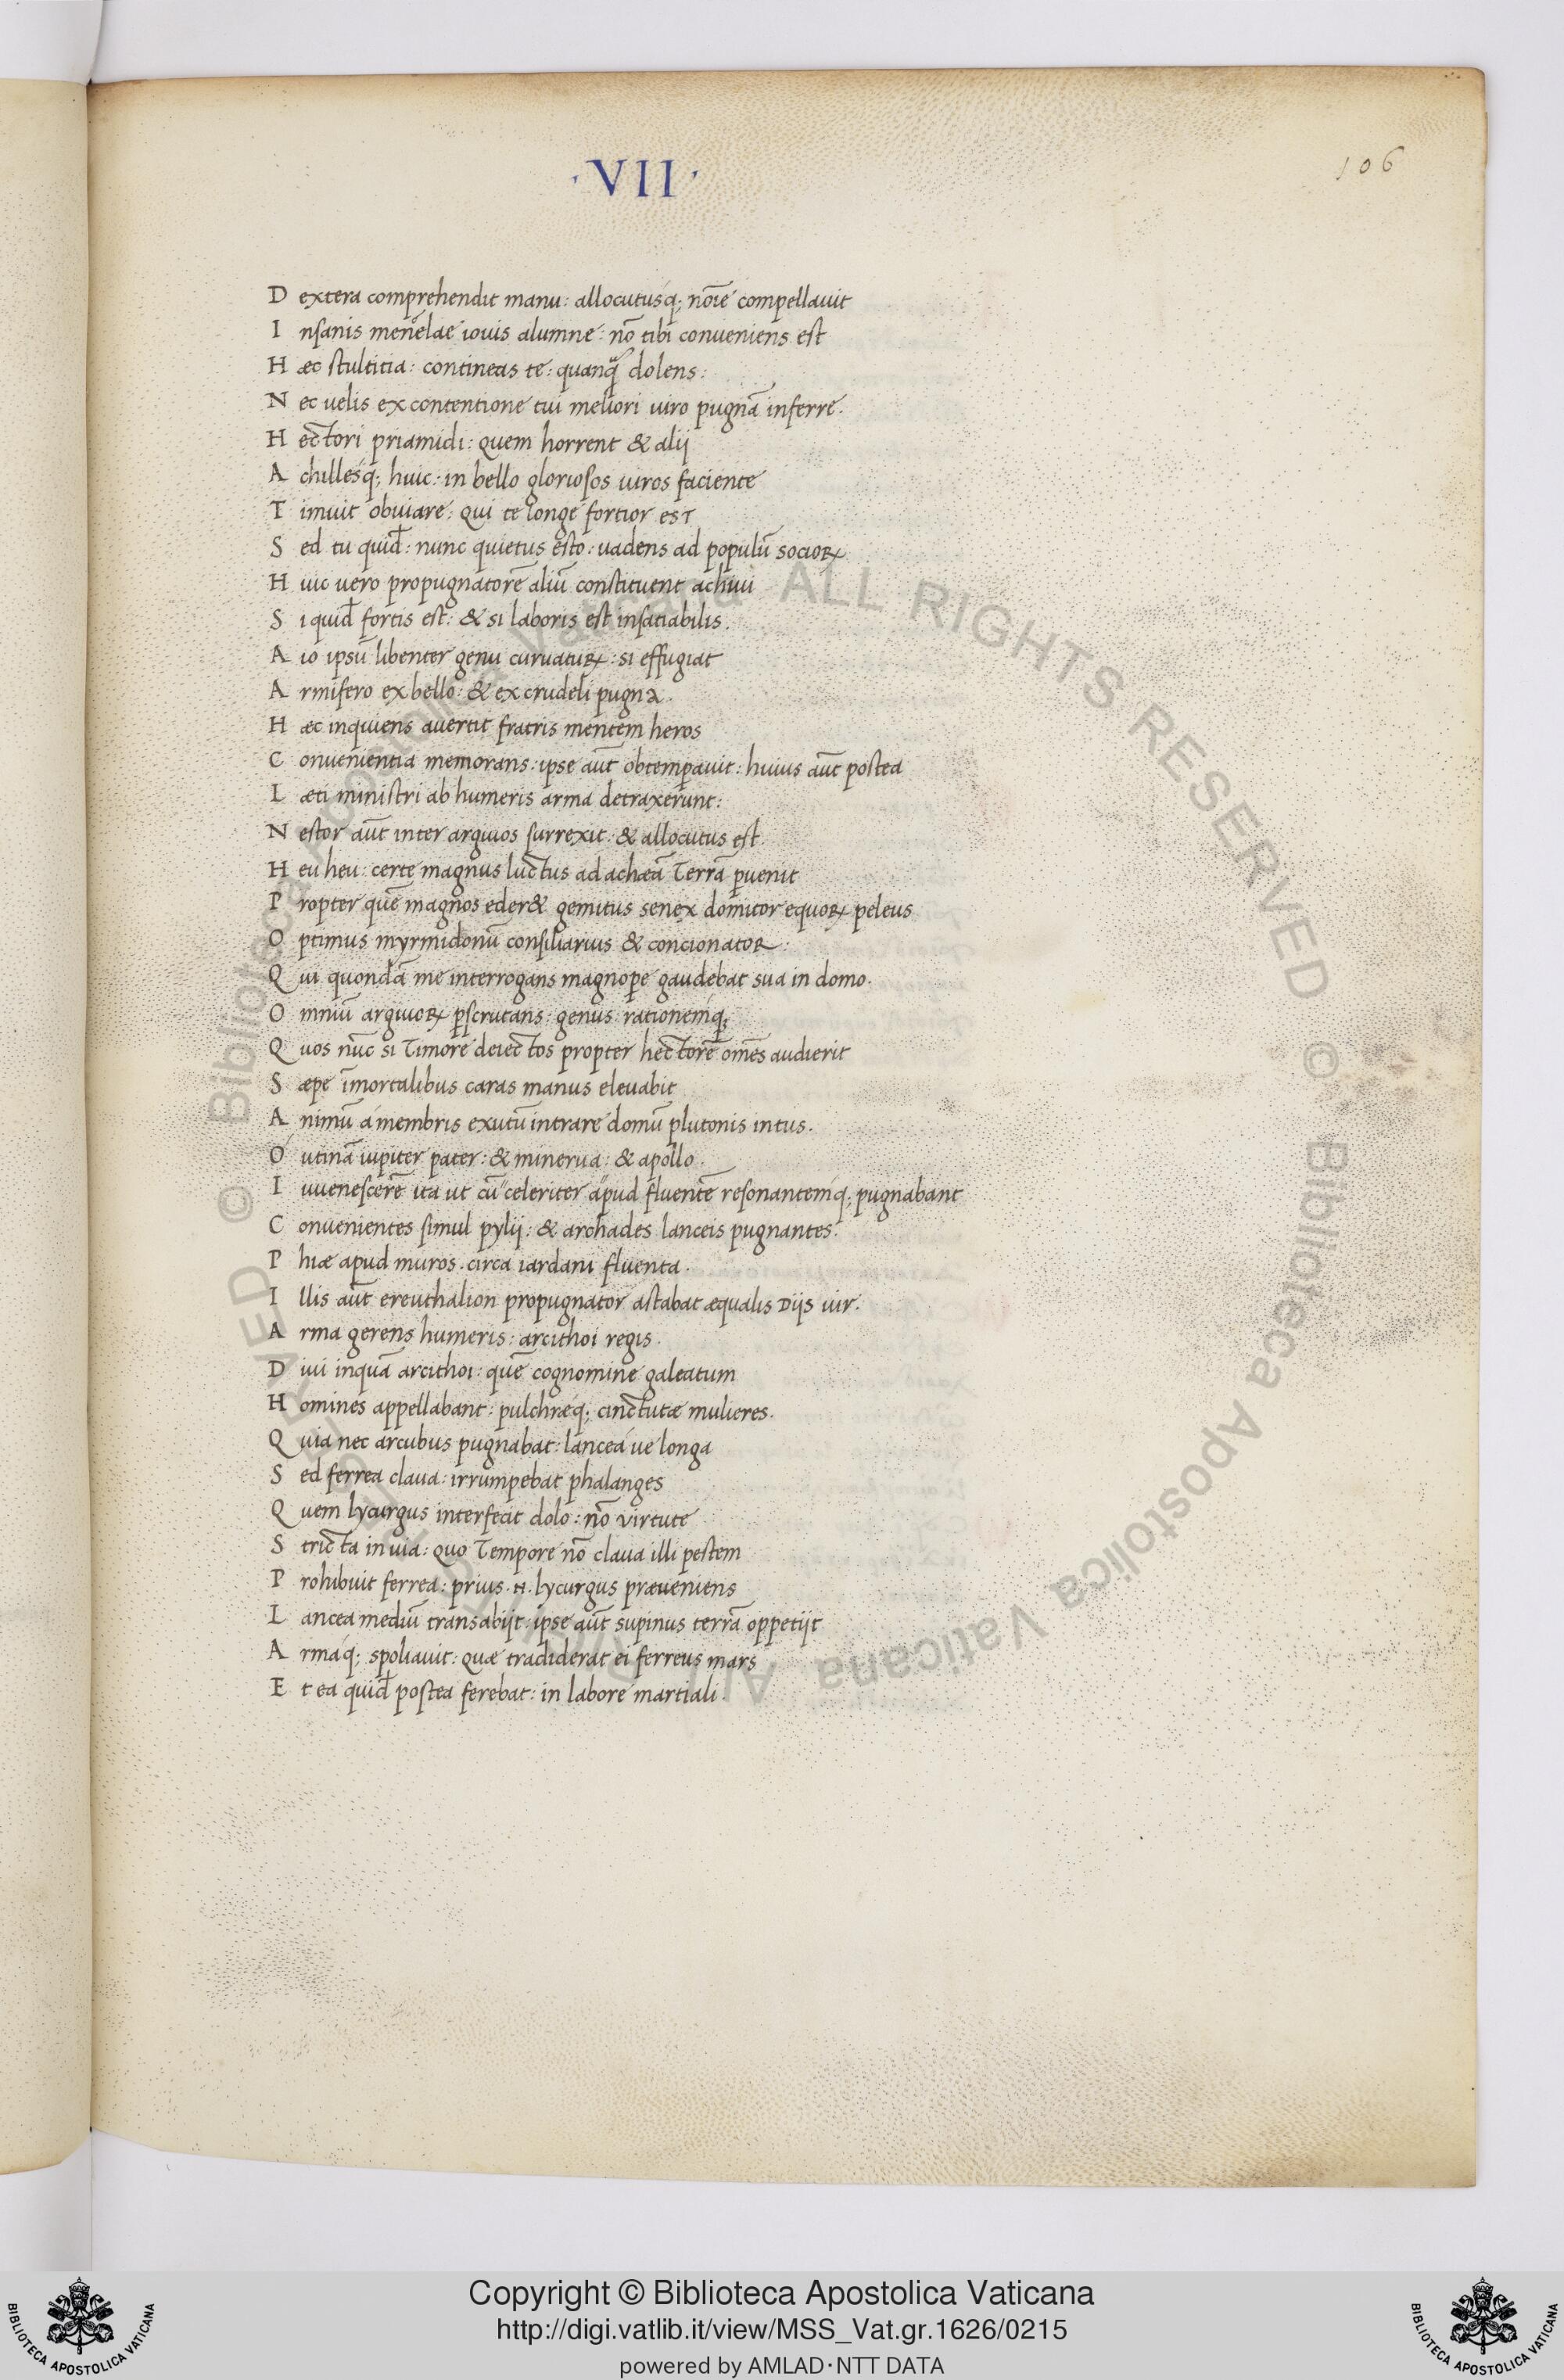 ·VII·
106
D extera comprehendit manu: allocutusq; nōıe compellauit
I nsanis menelae iouis alumne: nō tibi conueniens est
H æc stultitia: contineas te: quanq̃ dolens:
N ec uelis ex contentione tui meliori uiro pugnā inferre.
H ectori priamidi: quem horrent & alij
A chillesq; huic: in bello gloriosos uiros faciente
T imuit obuiare: qui te longe fortior est
S ed tu quid̄: nunc quietus esto: uadens ad populū socioꝝ
H uic uero propugnatorē aliū constituent achiui
S i quid̄ fortis est: & si laboris est insatiabilis.
A io ipsū libenter genu curuatuꝝ: si effugiat
A rmifero ex bello: & ex crudeli pugna.
H æc inquiens auertit fratris mentem heros
C onuenientia memorans: ipse aūt obtemꝑauit: huius aūt postea
L æti ministri ab humeris arma detraxerunt:
N estor aūt inter argiuos surrexit: & allocutus est.
H eu heu: certe magnus luctus ad achæā terrā ꝑuenit
P ropter quē magnos eder& gemitus senex domitor equoꝝ peleus
O ptimus myrmidonū consiliarius & concionator:
Q ui quondā me interrogans magnope gaudebat sua in domo.
O mniū argiuoꝝ ꝑscrutans: genus: rationemq;
Q uos nūc si timore deiectos propter hectorē omēs audierit
S æpe īmortalibus caras manus eleuabit
A nimū a membris exutū intrare domū plutonis intus.
O utinā iupiter pater: & minerua: & apollo.
I uuenescerē ita ut cū celeriter apud fluentē resonantemq; pugnabant
C onuenientes simul pylij: & archades lanceis pugnantes.
P hiæ apud muros. circa iardani fluenta.
I llis aūt ereuthalion propugnator astabat æqualis dijs uir.
A rma gerens humeris: arcithoi regis.
D iui inquā arcithoi: quē cognomine galeatum
H omines appellabant: pulchræq; cinctutæ mulieres.
Q uia nec arcubus pugnabat: lancea ue longa
S ed ferrea claua: irrumpebat phalanges
Q uem lycurgus interfecit dolo: nō virtute
S tricta in uia: quo tempore nō claua illi pestem
P rohibuit ferrea: prius .n. lycurgus præueniens
L ancea mediū transabijt: ipse aūt supinus terrā oppetijt
A rmaq; spoliauit: quæ tradiderat ei ferreus mars
E t ea quid̄ postea ferebat: in labore martiali.
© Biblioteca Apostolica Vaticana ALL RIGHTS RESERVED © Biblioteca Apostolica Vaticana ALL RIGHTS RESERVED
Copyright © Biblioteca Apostolica Vaticana
http://digi.vatlib.it/view/MSS_Vat.gr.1626/0215
powered by AMLAD·NTT DATA
BIBLIOTECA APOSTOLICA VATICANA
BIBLIOTECA APOSTOLICA VATICANA